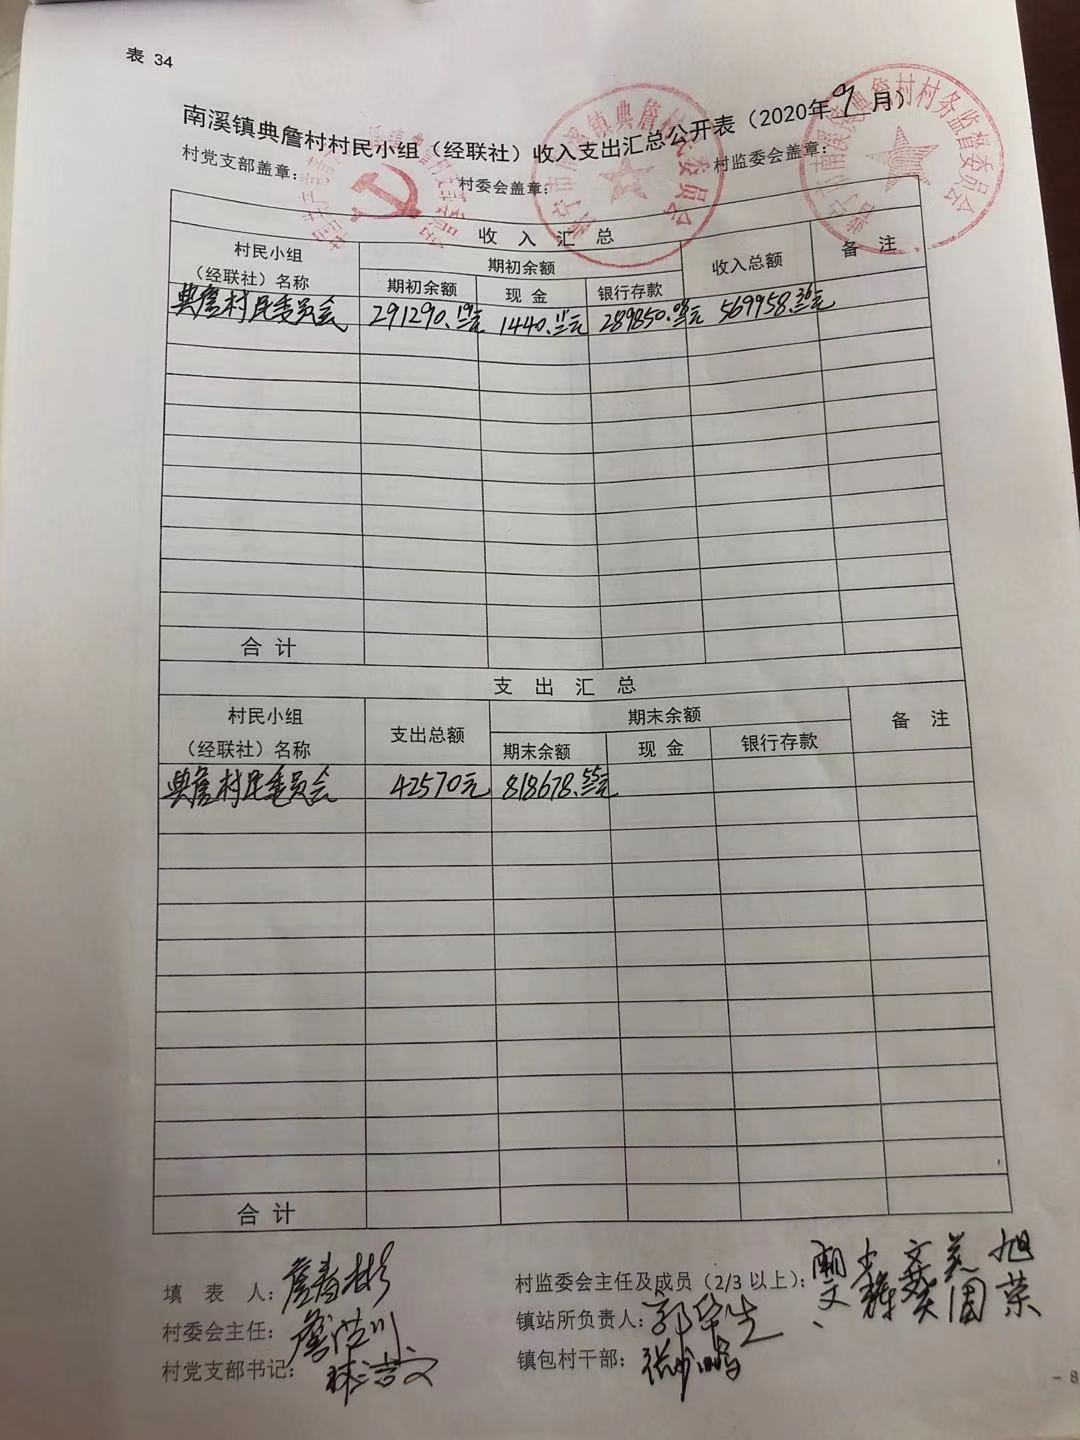 表 34
南溪镇典詹村村民小组（经联社）收入支出汇总公开表（2020年9月）
村党支部盖章： 村委会盖章： 村监委会盖章：
收 入 汇 总
村民小组（经联社）名称 期初余额 收入总额 备 注
期初余额 现 金 银行存款
典詹村民委员会 291290.19元 1440.11元 289850.08元 569958.36元
合 计
支 出 汇 总
村民小组（经联社）名称 支出总额 期末余额 备 注
期末余额 现 金 银行存款
典詹村民委员会 42570元 818678.55元
合 计
填 表 人： 村监委会主任及成员（2/3以上）：
村委会主任： 镇站所负责人：
村党支部书记： 镇包村干部：
- 8